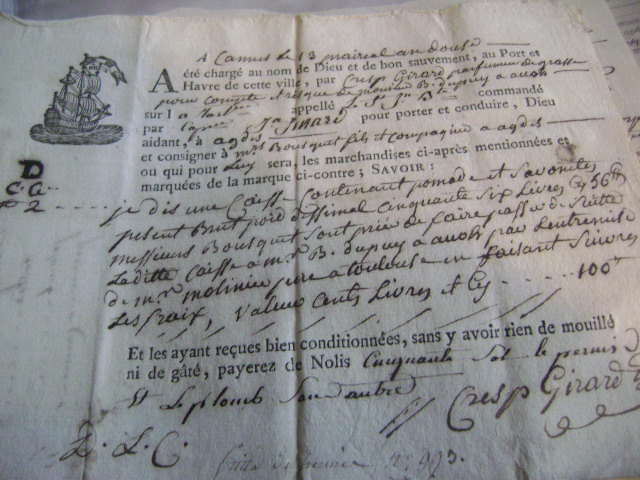 A Cannes le 13 praireal an douse
A été chargé au nom de Dieu et de bon sauvement, au Port et
Havre de cette ville, par Cresp Girard parfumeur de grasse
pour compte et risque de monsieur B. dupuy a auch
sur l a Tartane appellé le St Jn Bte commandé
par Capne Jn Sinard pour porter et conduire, Dieu
aidant, à agdes
et consigner à mrs Bousquet fils et compagnie a agdes
ou qui pour Eux sera, les marchandises ci-après mentionnées et
marquées de la marque ci-contre; SAVOIR:
D
C. G.
2
je dis une Caisse Contenant pomade et Savonetes
pesent Brut poid dessimal Cinquante six Livres Cy 56 lt
messieurs Bousquet sont prié de faire passé de suitte
Laditte Caisse a mr B. dupuy a auch par Lentremise
de mr. molinier pere a toulouse en faisant suivre
Les fraix, valeur Cents Livres et Cy 100 lt
Et les ayant reçues bien conditionnées, sans y avoir rien de mouillé
ni de gâté, payerez de Nolis Cinquante sol le permis
et Le plomb
Cresp Girard
L. L. C.
no. 993.